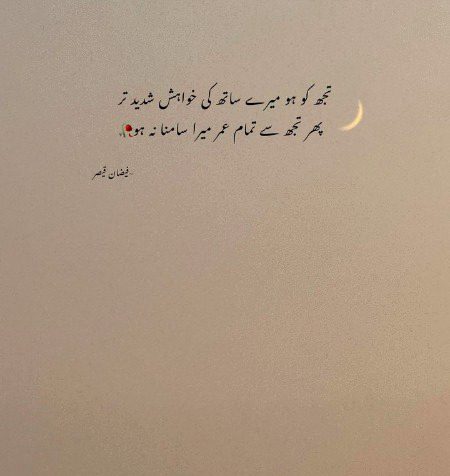 تجھ کو ہو میرے ساتھ کی خواہش شدید تر
پھر تجھ سے تمام عمر میرا سامنا نہ ہو🥀
-فیضان قیصر